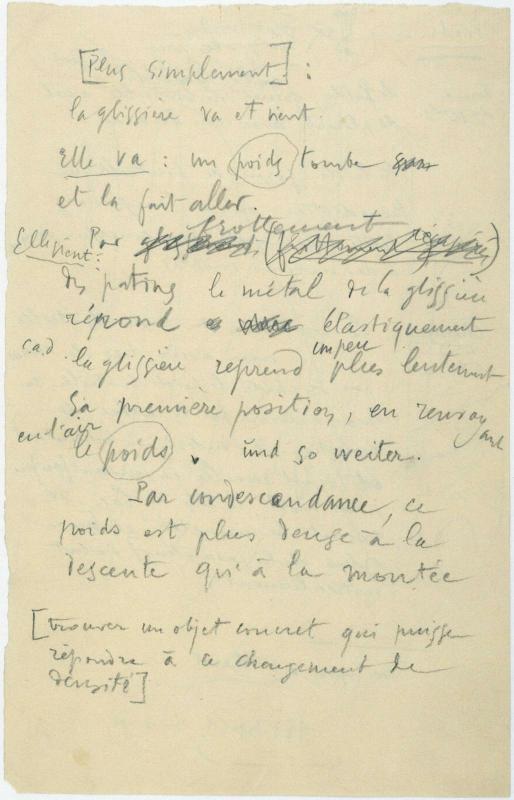 [Plus simplement] :
la glissière va et vient.
Elle va : un poids tombe
et la fait aller.
frottement
Elle vient : Par
des patins le métal de la glissière
répond élastiquement
un peu
c.a.d. la glissière reprend plus lentement
sa première position, en renvoyant
en l'air
le poids. und so weiter.
Par condescendance, ce
poids est plus dense à la
descente qu'à la montée
[trouver un objet concret qui puisse
répondre à ce changement de
densité]